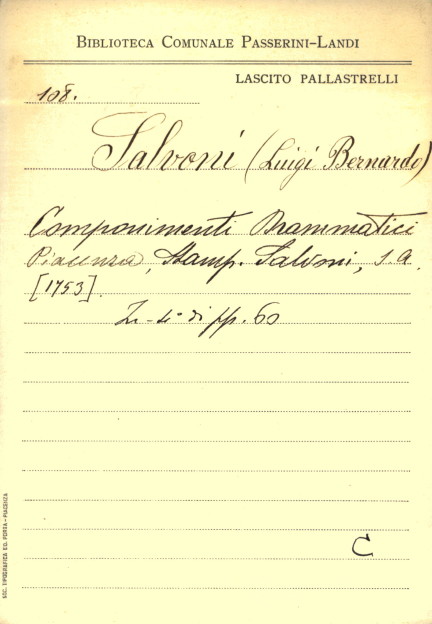 BIBLIOTECA COMUNALE PASSERINI-LANDI
LASCITO PALLASTRELLI
108.
Salvoni (Luigi Bernardo)
Componimenti Drammatici
Piacenza, Stamp. Salvoni, s.a.
[1753].
In-4° di pp. 60
C
SOC. TIPOGRAFICA ED. PORTA-PIACENZA